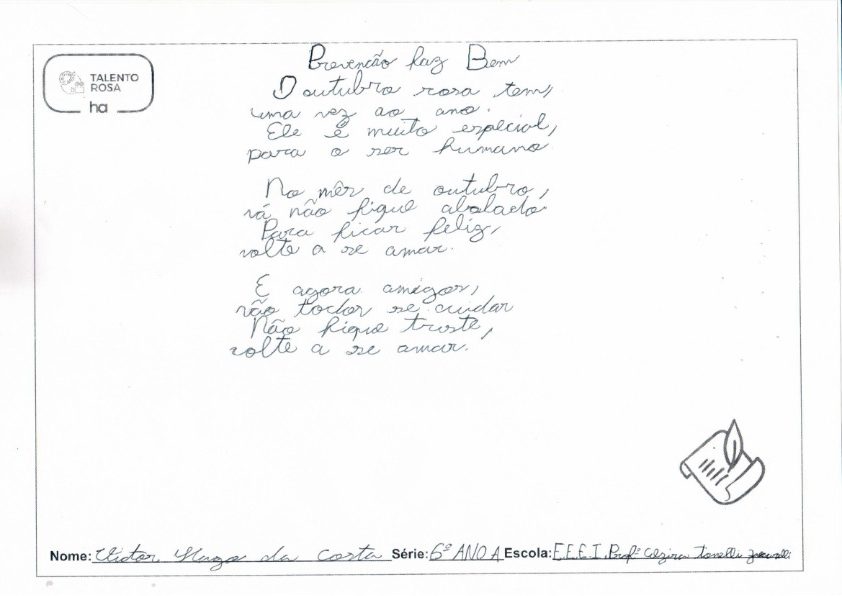 TALENTO
ROSA
ha
Prevenção faz Bem
O outubro rosa tem,
uma vez ao ano.
Ele é muito especial,
para o ser humano
No mês de outubro,
vá não fique abalado.
Para ficar feliz,
volte a se amar.
E agora amigos,
vão todos se cuidar
Não fique triste,
volte a se amar.
Nome: Victor Hugo da Costa Série: 6º ANO A Escola: E.E.E.I. Profª Alzira Tonelli